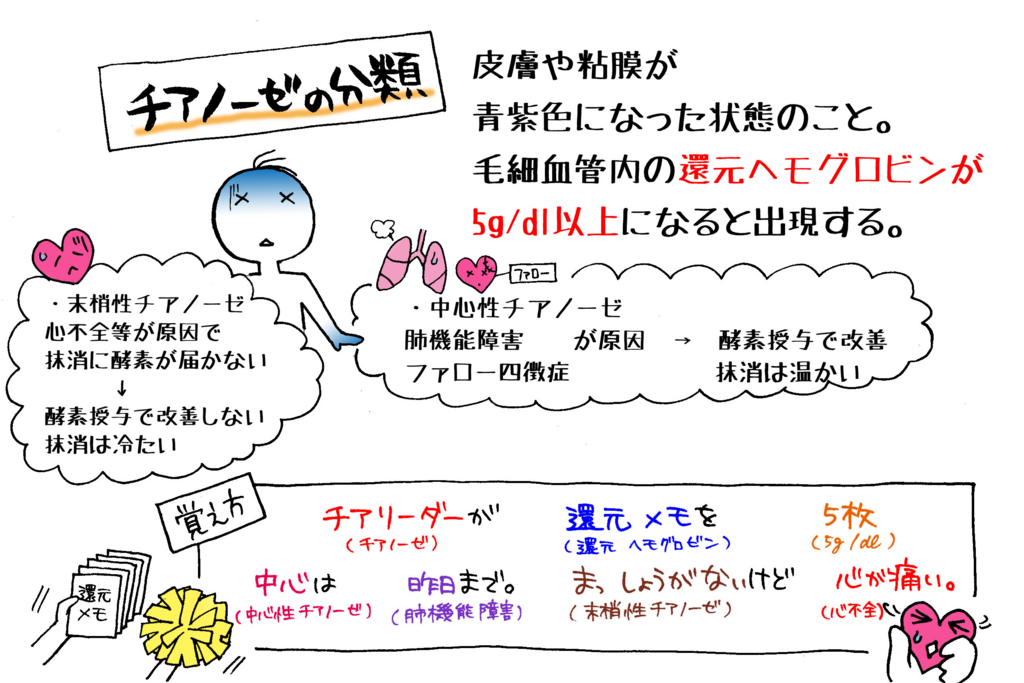 チアノーゼの分類
皮膚や粘膜が
青紫色になった状態のこと。
毛細血管内の還元ヘモグロビンが
5g/dl以上になると出現する。
・末梢性チアノーゼ
心不全等が原因で
抹消に酵素が届かない
↓
酵素授与で改善しない
抹消は冷たい
ファロー
・中心性チアノーゼ
肺機能障害 が原因 → 酵素授与で改善
ファロー四徴症 抹消は温かい
覚え方
チアリーダーが 還元メモを 5枚
(チアノーゼ) (還元 ヘモグロビン) (5g/dl)
中心は 昨日まで。 まっしょうがないけど 心が痛い。
(中心性チアノーゼ) (肺機能障害) (末梢性チアノーゼ) (心不全)
還元
メモ